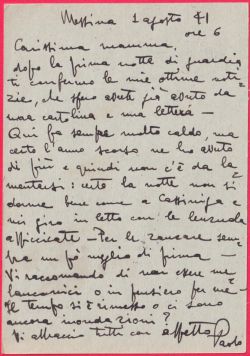 Messina 1 agosto 41
ore 6
Carissima mamma,
dopo la prima notte di guardia
ti confermo le mie ottime noti
zie, che spero avrete già avuto da
una cartolina e una lettera –
Qui fa sempre molto caldo, ma
certo l'anno scorso ne ho avuto
di più e quindi non c'è da la=
mentarsi: certo la notte non si
dorme bene come a Cassiniga e
mi giro in letto con le lenzuola
appiccicate – Per le zanzare sem
pre un po' meglio di prima –
Vi raccomando di non essere me
lanconici o in pensiero per me –
Il tempo si è rimesso o ci sono
ancora inondazioni?
Vi abbraccio tutti con affetto Paolo